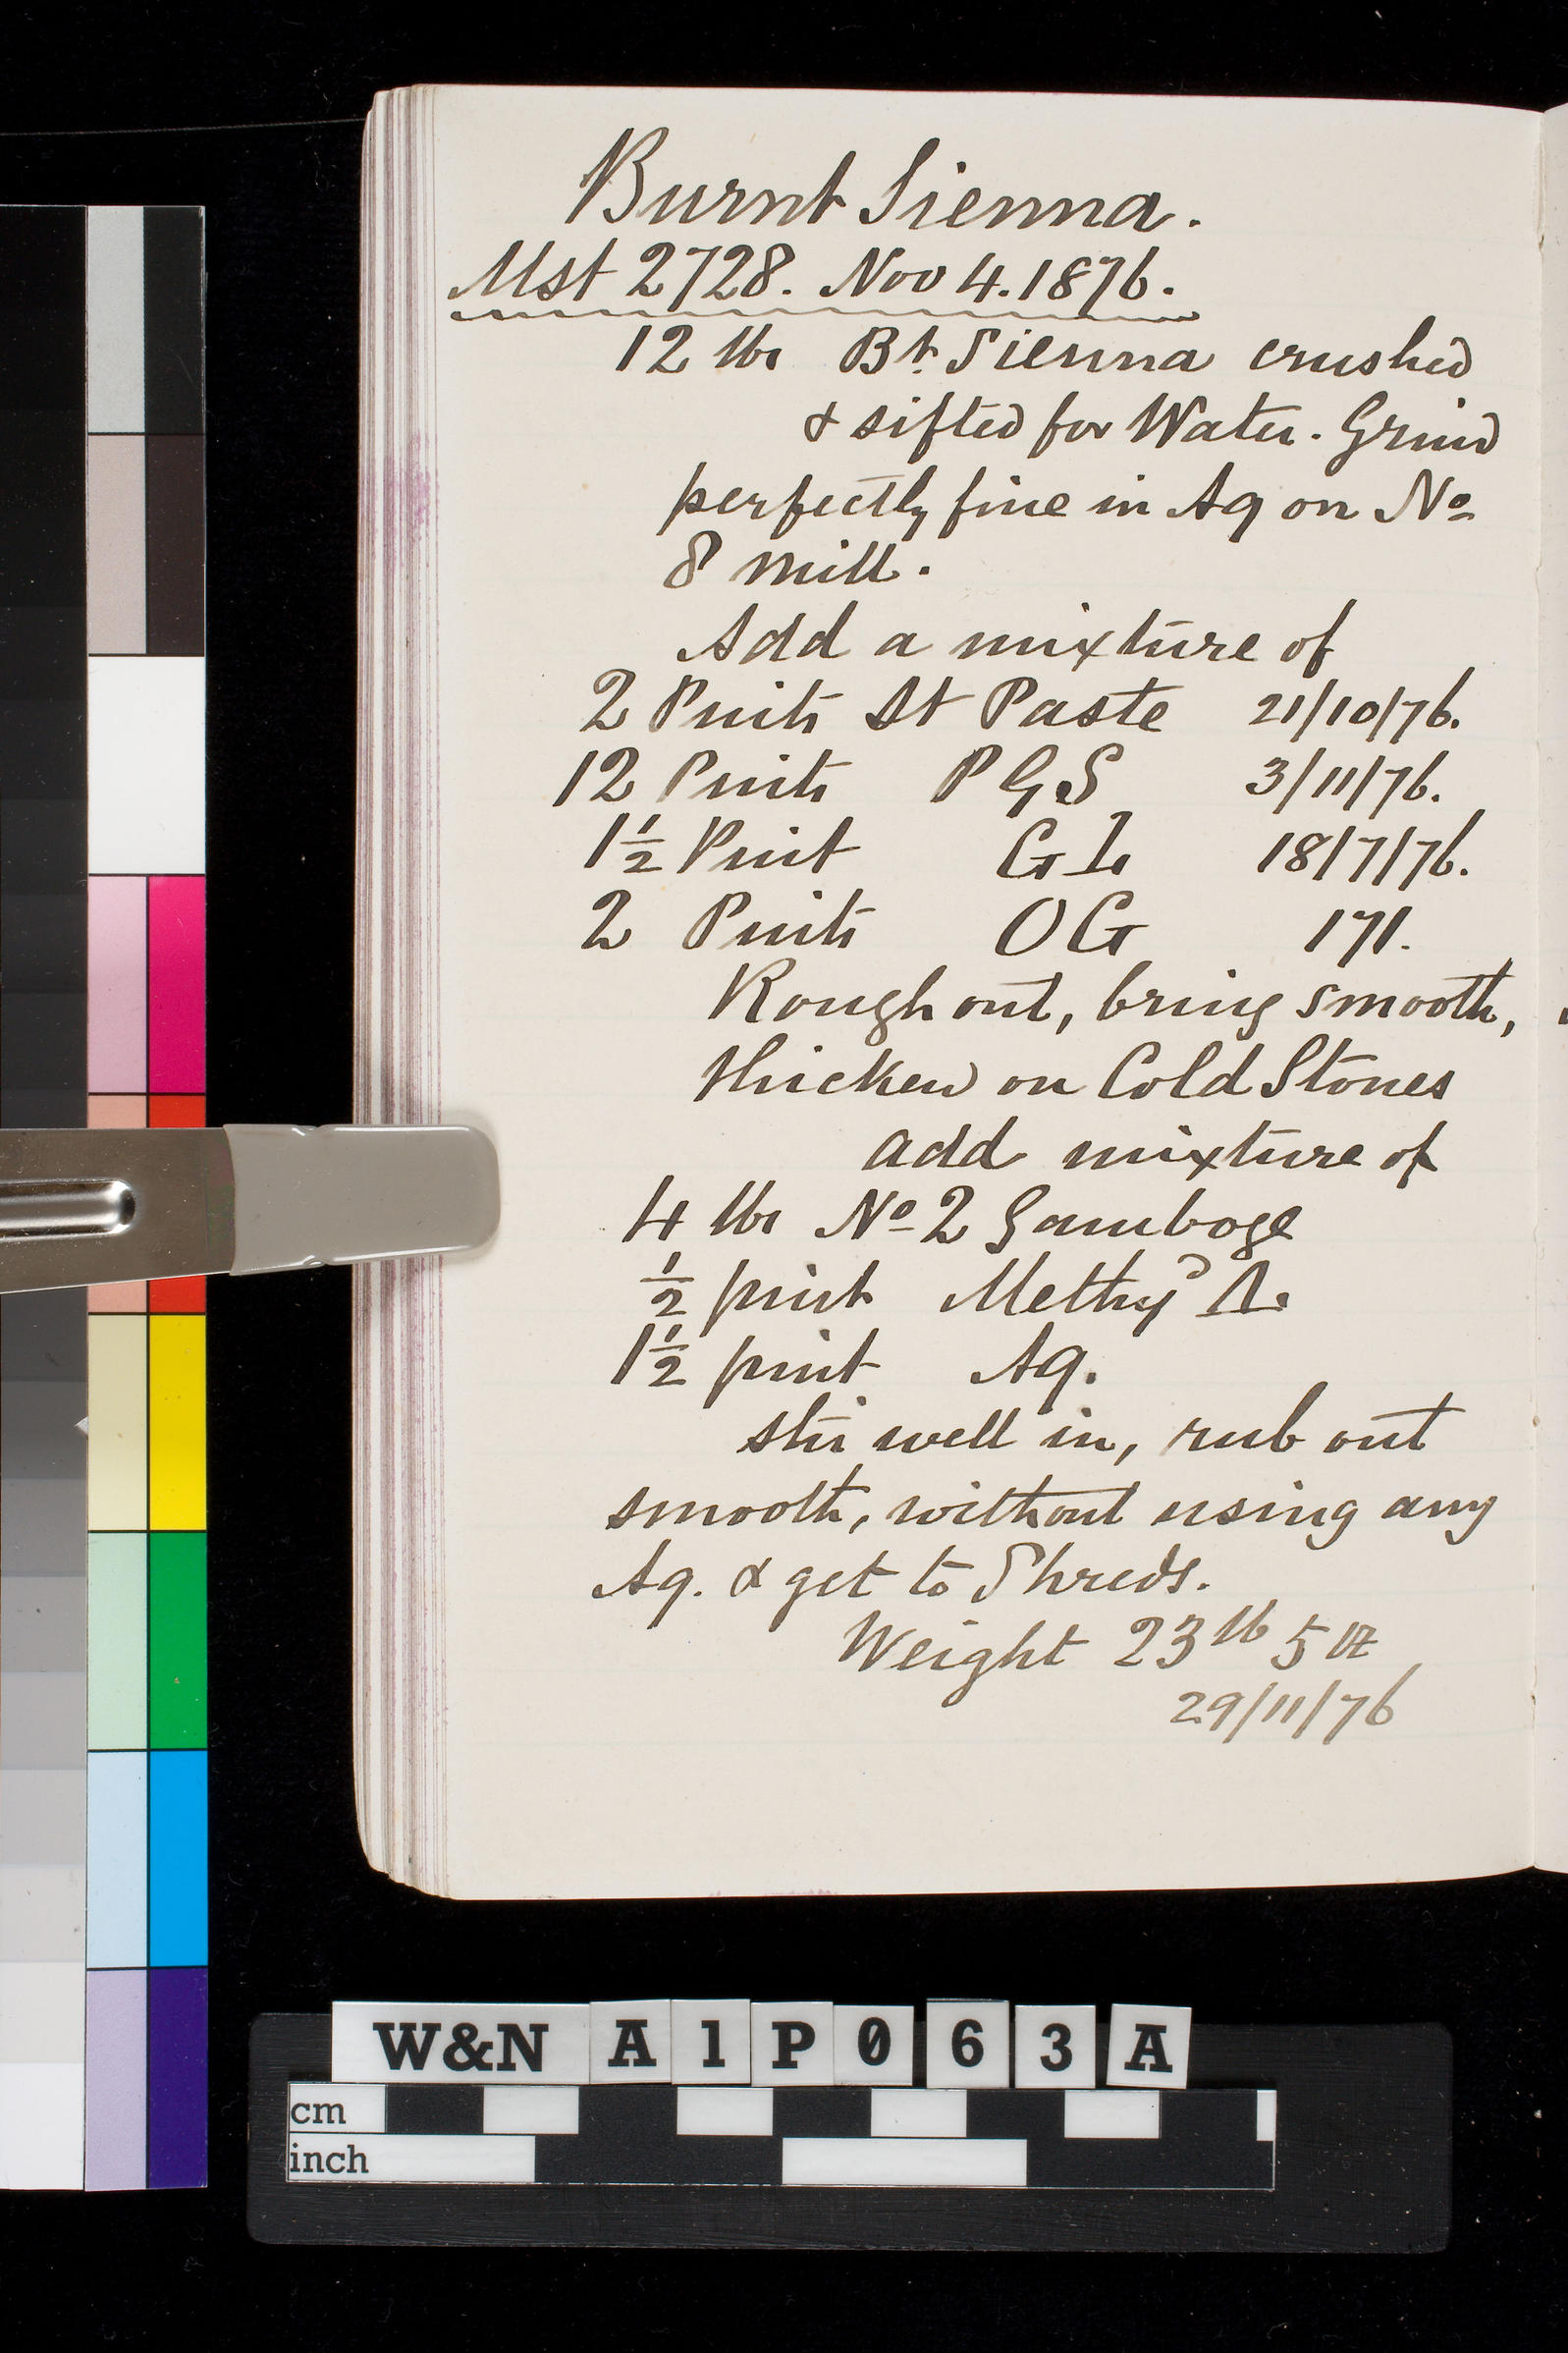 Burnt Sienna.
Mst 2728. Nov 4. 1876.
12 lbs Bt. Sienna crushed
& sifted for Water. Grind
perfectly fine in Aq on No
8 mill.
Add a mixture of
2 Pints St Paste 21/10/76.
12 Pints P G S 3/11/76.
1½ Pint G L 18/7/76.
2 Pints OG 171.
Rough out, bring smooth,
thicken on Cold Stones
add mixture of
4 lbs No 2 Gamboge
½ pint Methyd
1½ pint Aq.
stir well in, rub out
smooth, without using any
Aq. & get to Shreds.
Weight 23 lb 5 oz
29/11/76
W&N A1P063A
cm
inch